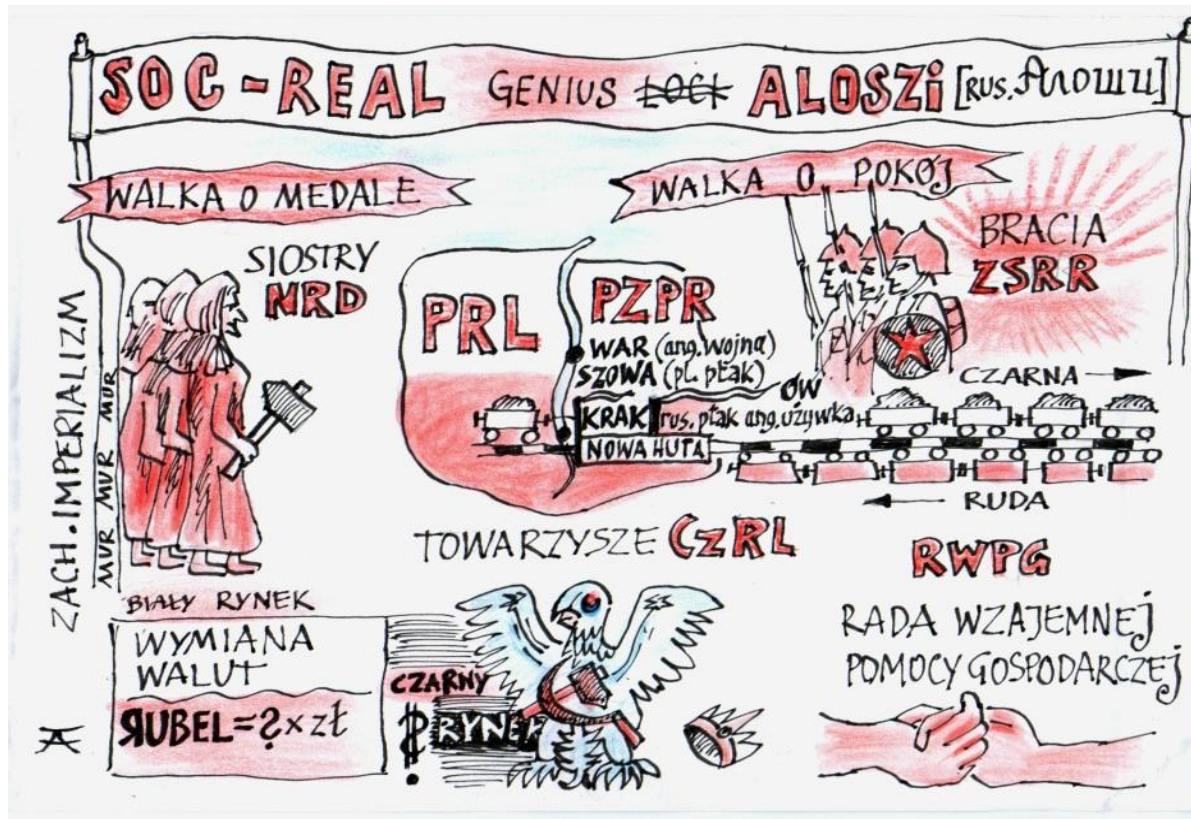 SOC-REAL GENIUS LOCI ALOSZi [RUS. Алоши]
WALKA O MEDALE
WALKA O POKÓJ
SIOSTRY
NRD
BRACIA
ZSRR
ZACH. IMPERIALIZM
MUR MUR MUR MUR
PRL
PZPR
WAR (ang. wojna)
SZOWA (pl. ptak)
ÓW
KRAK rus. ptak ang. używka
NOWA HUTA
CZARNA
RUDA
TOWARZYSZE CzRL
RWPG
RADA WZAJEMNEJ
POMOCY GOSPODARCZEJ
BIAŁY RYNEK
WYMIANA
WALUT
ЯUBEL=?×zł
CZARNY
$ RYNEK